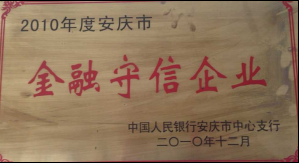 2010年度安庆市
金融守信企业
中国人民银行安庆市中心支行
二〇一〇年十二月